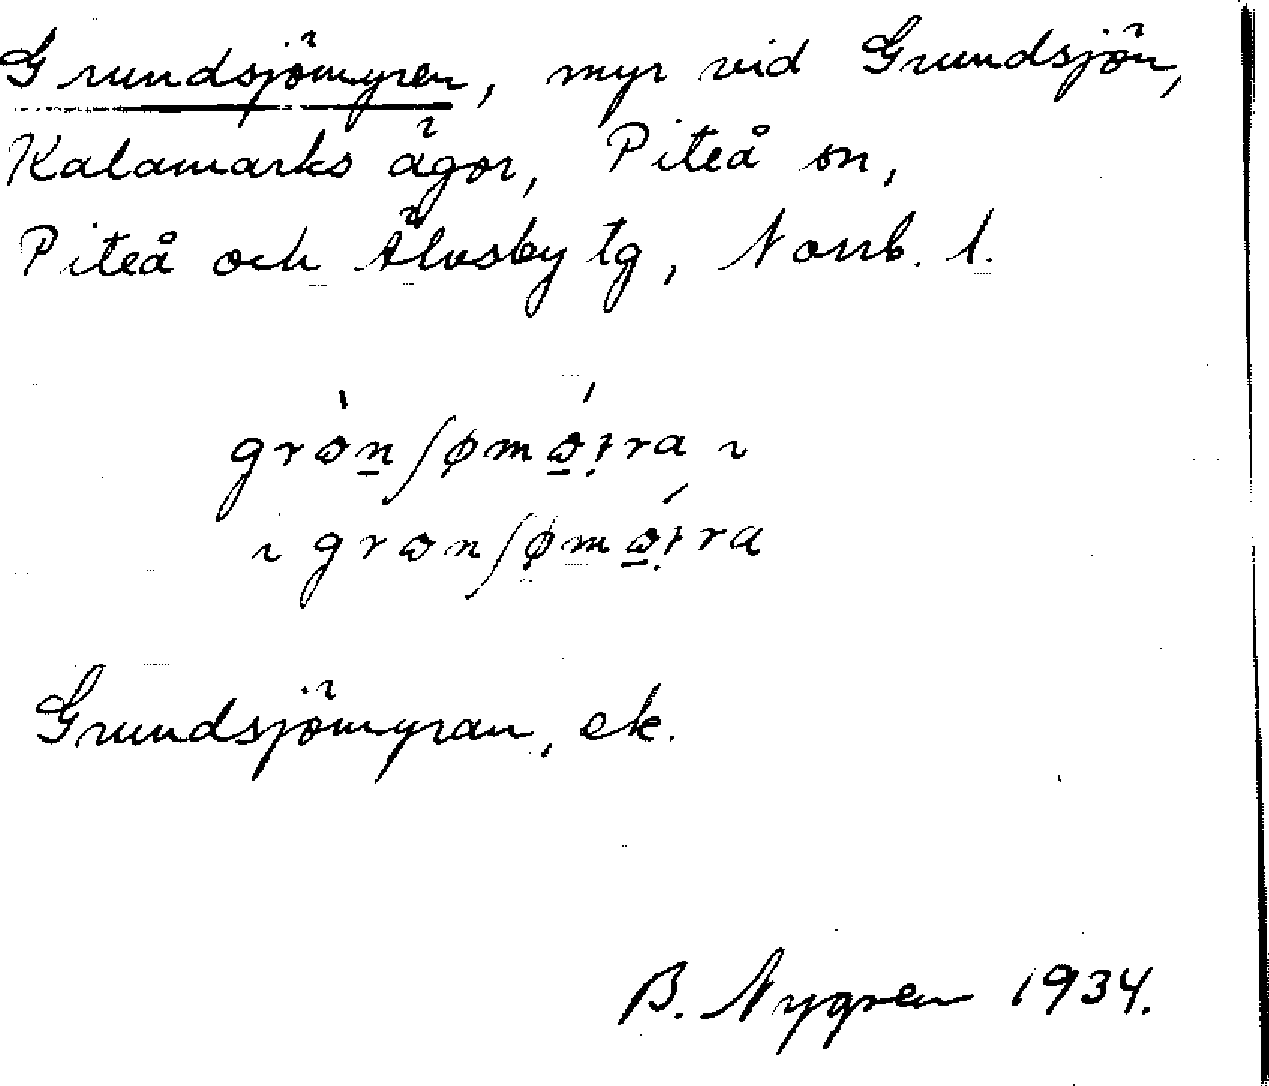 Grundsjömyren, myr vid Grundsjön,
Kalamarks ägor, Piteå sn,
Piteå och Älvsby tg, Norrb. l.
Grundsjömyran, ek.
B. Nygren 1934.